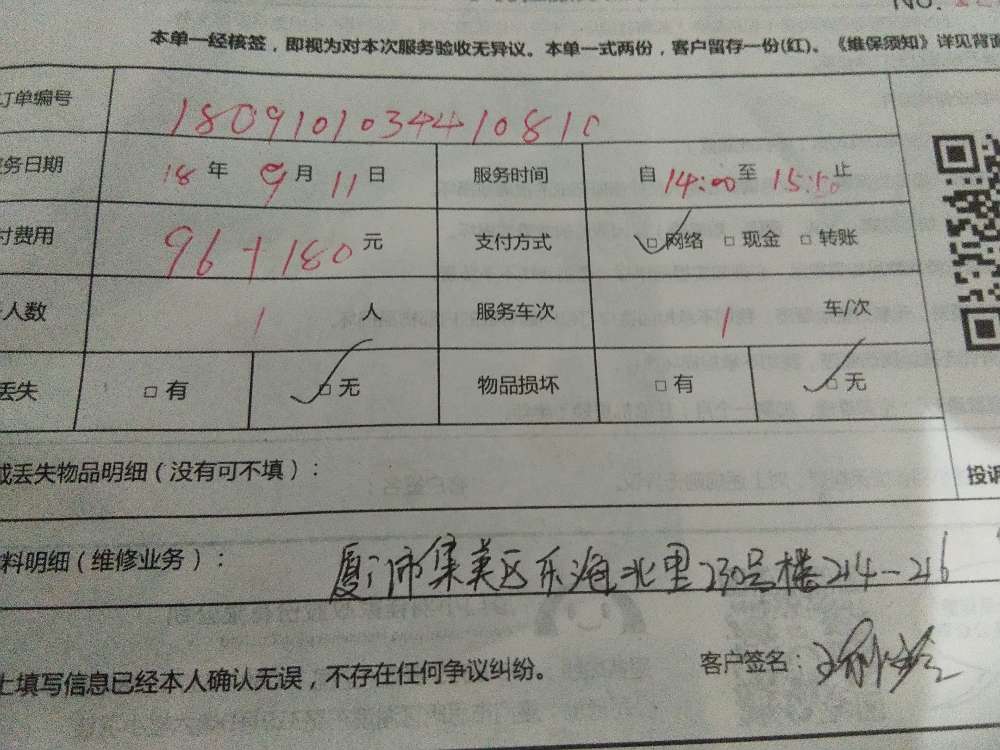 No.
本单一经核签，即视为对本次服务验收无异议。本单一式两份，客户留存一份(红)。《维保须知》详见背面
订单编号 180910103441081
务日期 18 年 9 月 11 日 服务时间 自 14:00 至 15:50 止
付费用 96+180 元 支付方式 □网络 □现金 □转账
人数 1 人 服务车次 1 车/次
丢失 □有 □无 物品损坏 □有 □无
或丢失物品明细（没有可不填）： 投诉
料明细（维修业务）： 厦门市集美区乐海北里230号楼214-216
上填写信息已经本人确认无误，不存在任何争议纠纷。 客户签名：